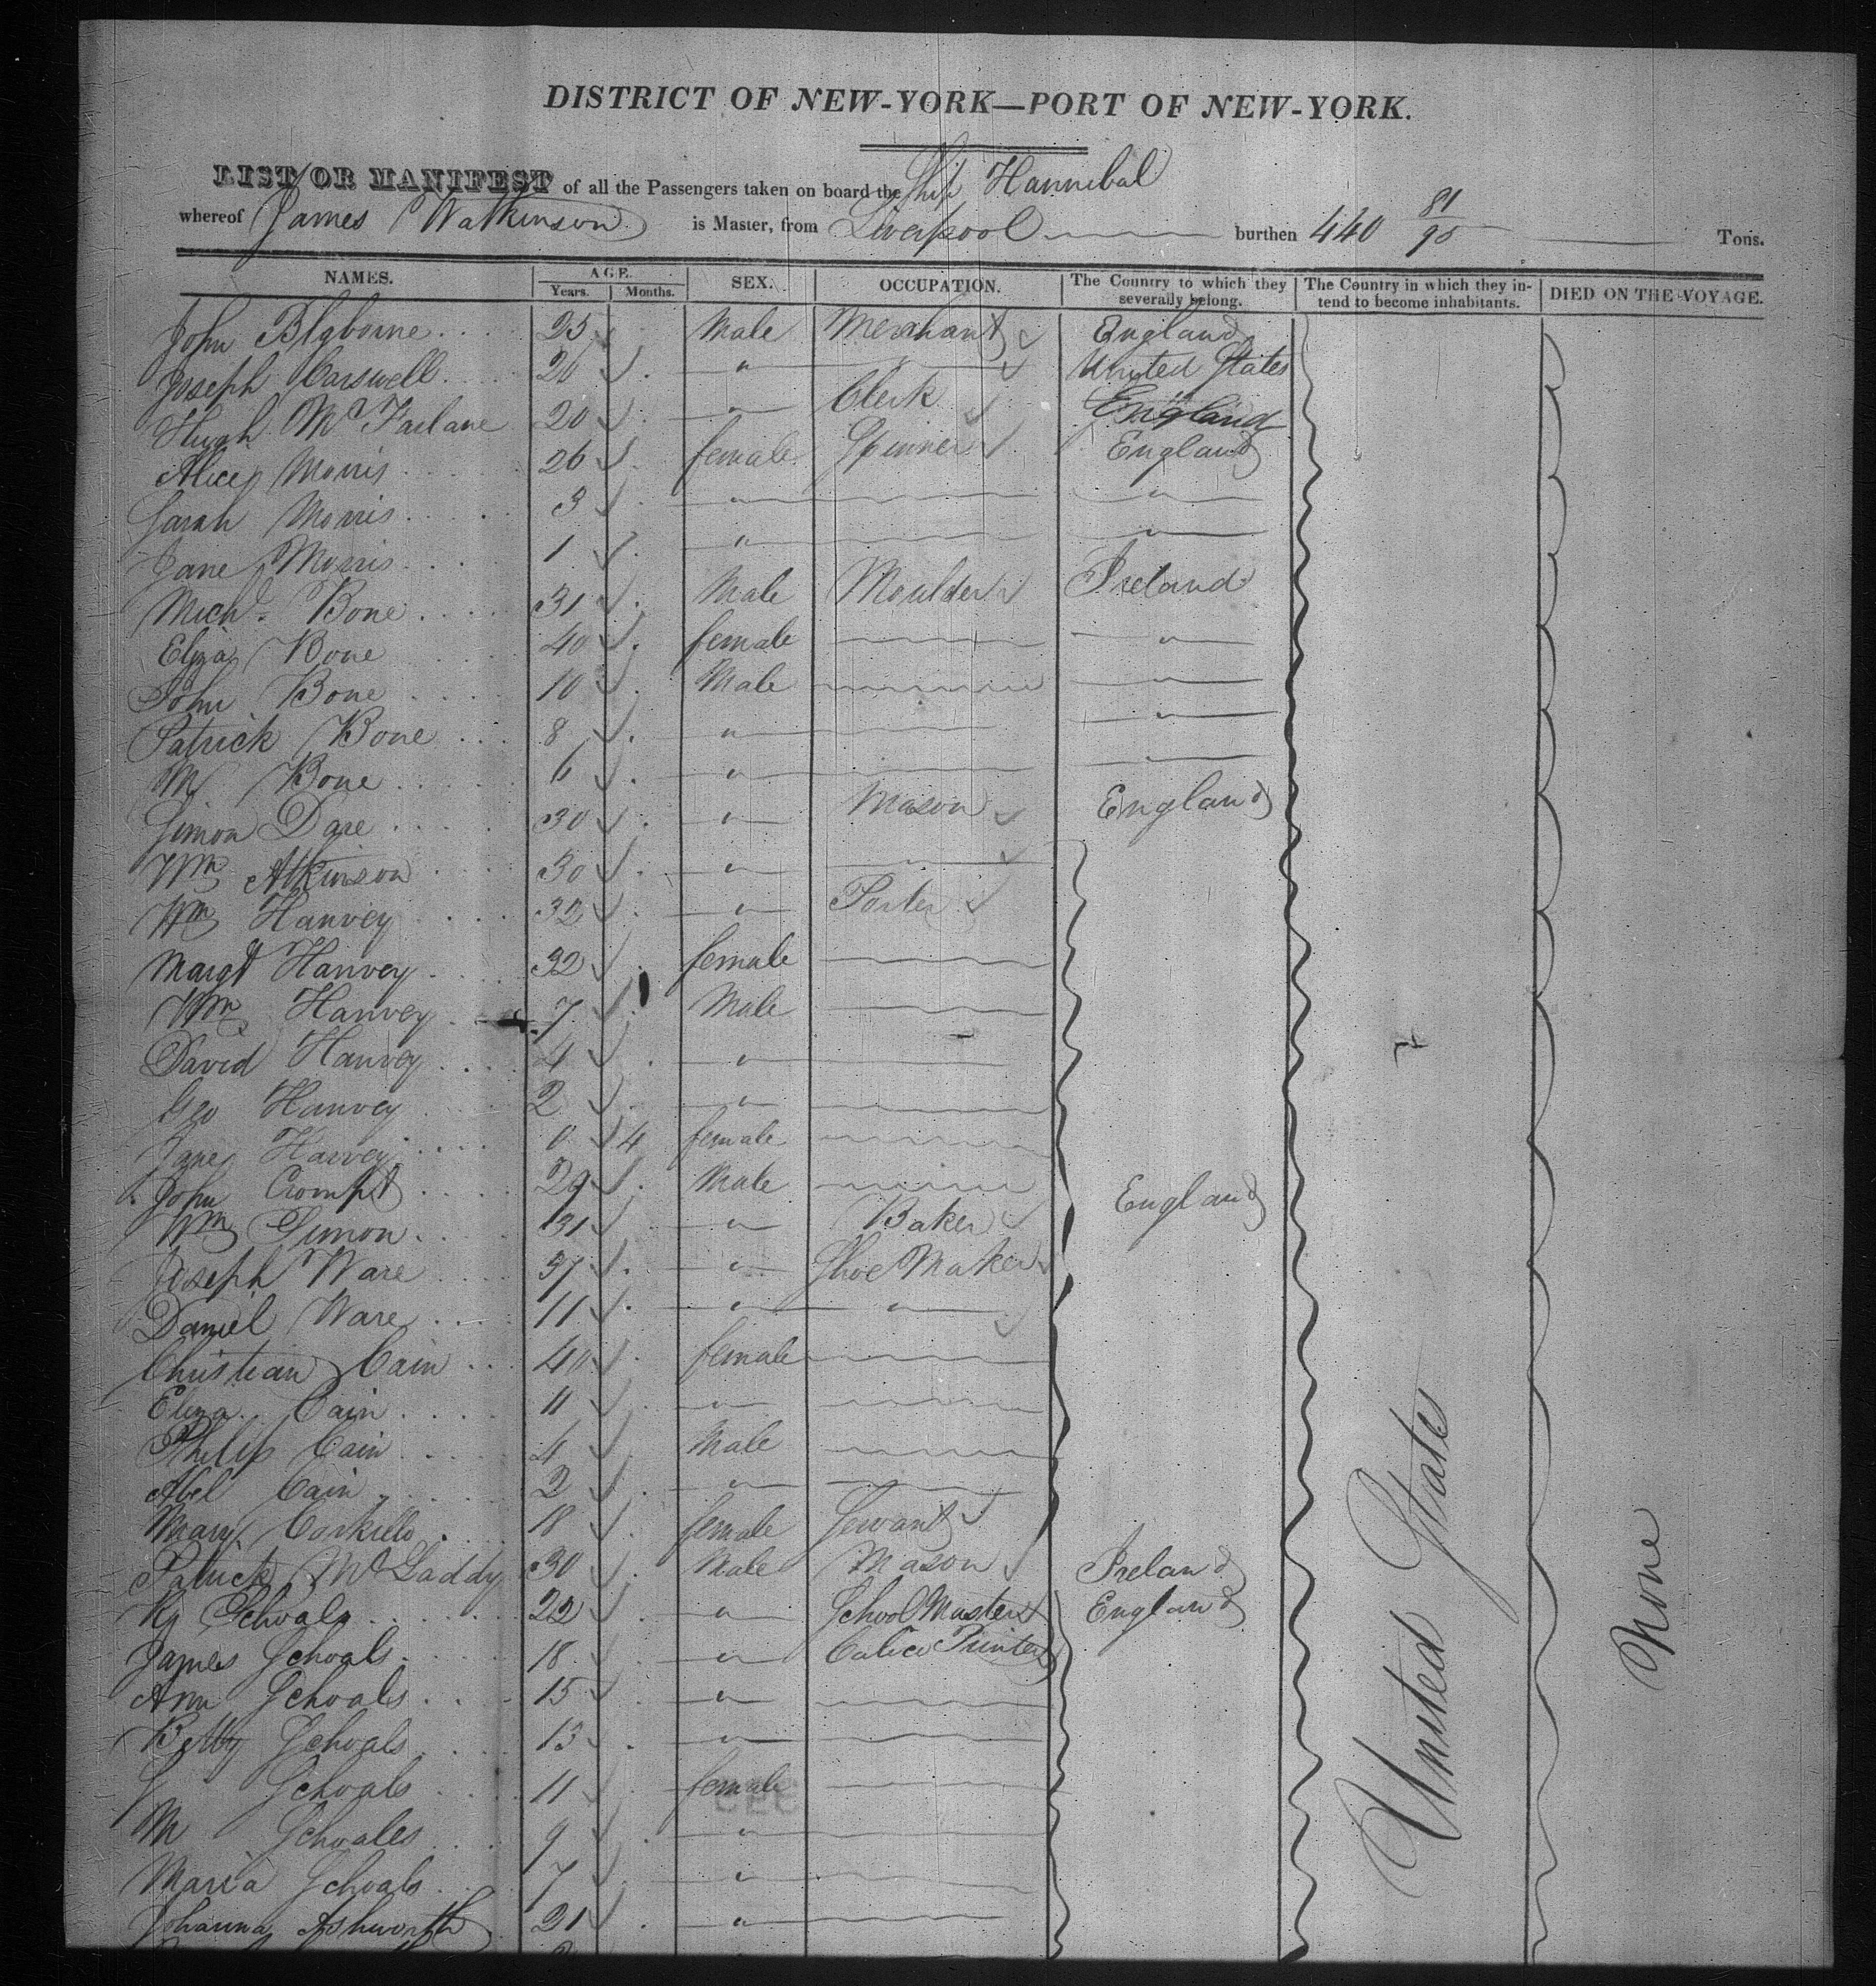 DISTRICT OF NEW-YORK—PORT OF NEW-YORK.
LIST OR MANIFEST of all the Passengers taken on board the Ship Hannibal
whereof James Watkinson is Master, from Liverpool burthen 440 81/95 Tons.
NAMES. AGE. Years. Months. SEX. OCCUPATION. The Country to which they severally belong. The Country in which they intend to become inhabitants. DIED ON THE VOYAGE.
John Blyborne 25 Male Merchant England
Joseph Carswell 26 " United States
Hugh Mc Farlane 20 " Clerk England
Alice Morris 26 female Spinner England
Sarah Morris 3 " "
Jane Morris 1 " "
Michl Bone 31 Male Moulder Ireland
Eliza Bone 40 female "
John Bone 10 Male "
Patrick Bone 8 " "
M Bone 6 " "
Simon Dare 30 " Mason England
Wm Atkinson 30 " "
Wm Hanvey 32 " Porter
Margt Hanvey 32 female
Wm Hanvey 7 Male
David Hanvey 4 "
Geo Hanvey 2 "
Jane Harvey 0 4 female
John Crompt 29 Male England
Wm Simon 31 " Baker
Joseph Ware 37 " Shoe Maker
Daniel Ware 11 " "
Christian Cain 40 female
Eliza Cain 11 "
Philip Cain 4 Male
Abel Cain 2 "
Mary Corkill 18 female Servant
Patrick Mc Gaddy 30 Male Mason Ireland
Schoals 22 " School Master England
James Schoals 18 " Calico Printer
Ann Schoals 15 "
Betty Schoals 13 "
Schoals 11 female
M Schoales 9 "
Maria Schoals 7 "
Johanna Ashworth 21 "
United States
None